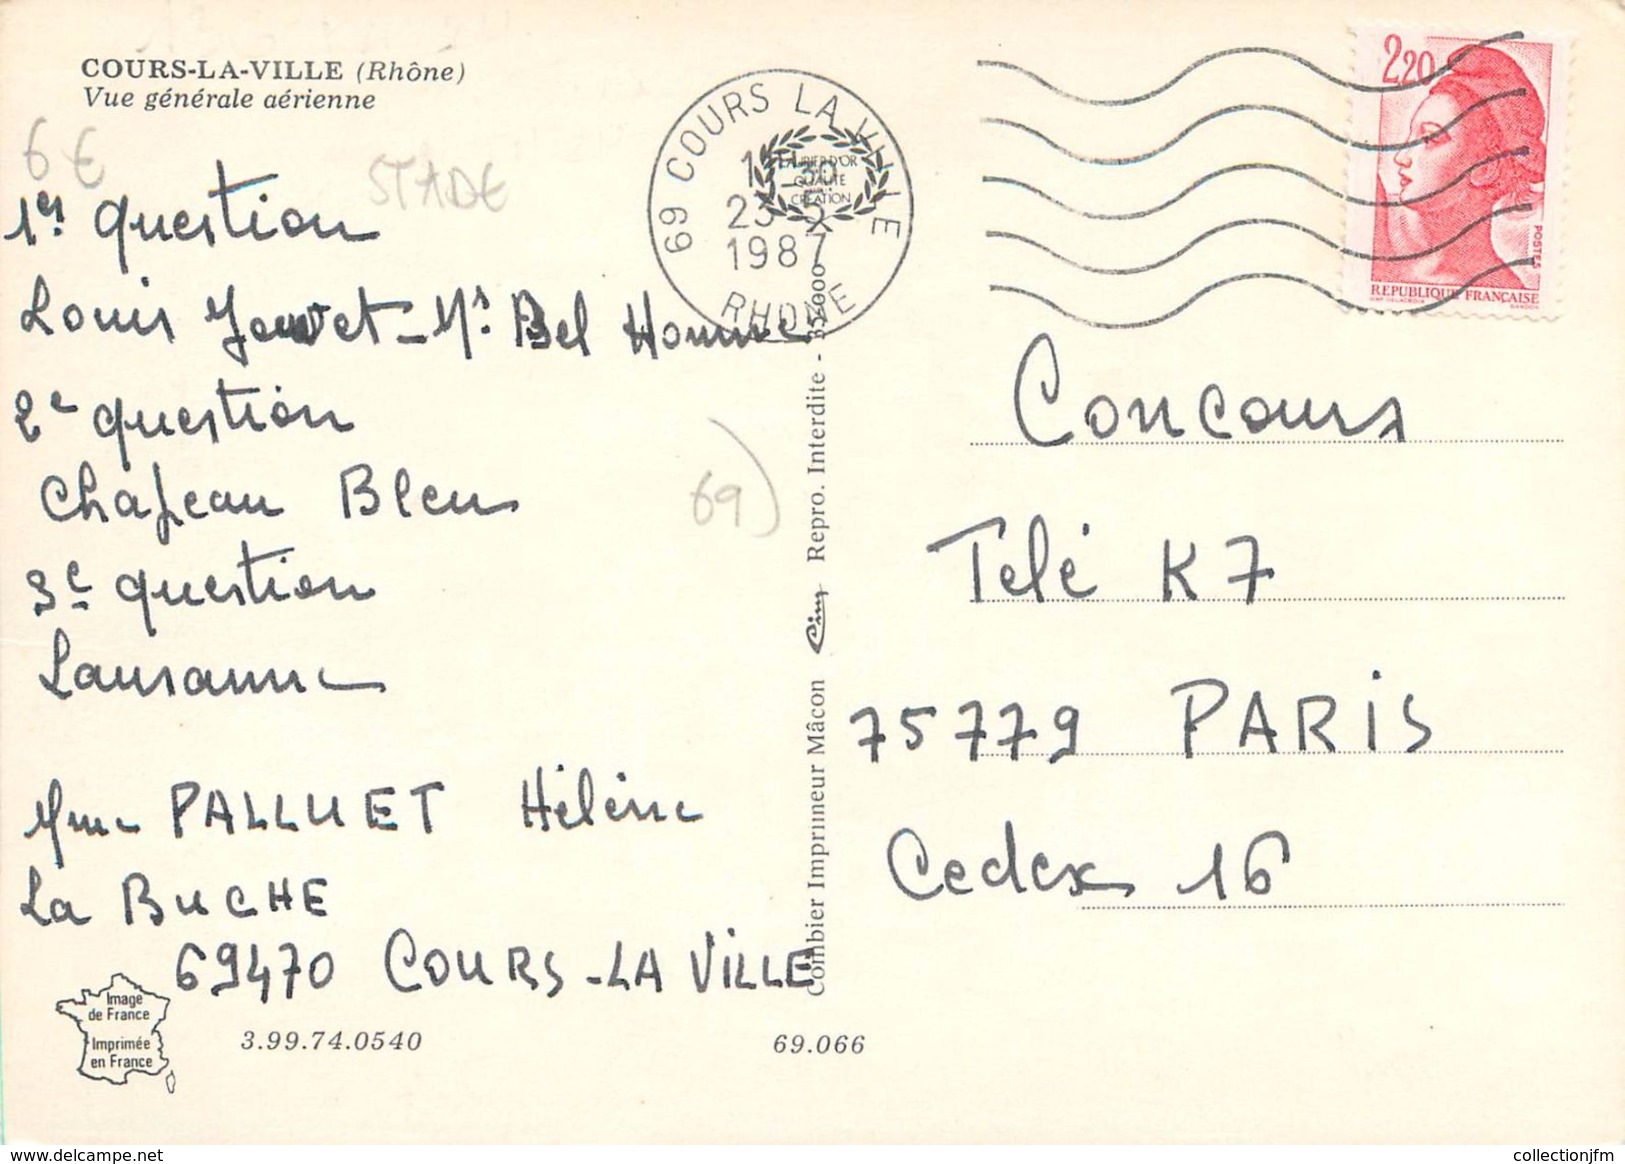 COURS-LA-VILLE (Rhône)
Vue générale aérienne
6€
STADE
1er question
Louis Jouvet - Mr Bel Homme
2e question
Chapeau Bleu
3e question
Lausanne
Mme PALLUET Hélène
La BUCHE
69470 COURS-LA VILLE
Image
de France
Imprimée
en France
3.99.74.0540
69.066
69)
Combier Imprimeur Mâcon Cim Repro. Interdite - 35.000
LAURIER D'OR
QUALITÉ
CRÉATION
69 COURS LA VILLE
23-5
1987
RHONE
2,20
POSTES
REPUBLIQUE FRANÇAISE
GANDON
Concours
Télé K7
75779 PARIS
Cedex 16
www.delcampe.net
collectionjfm